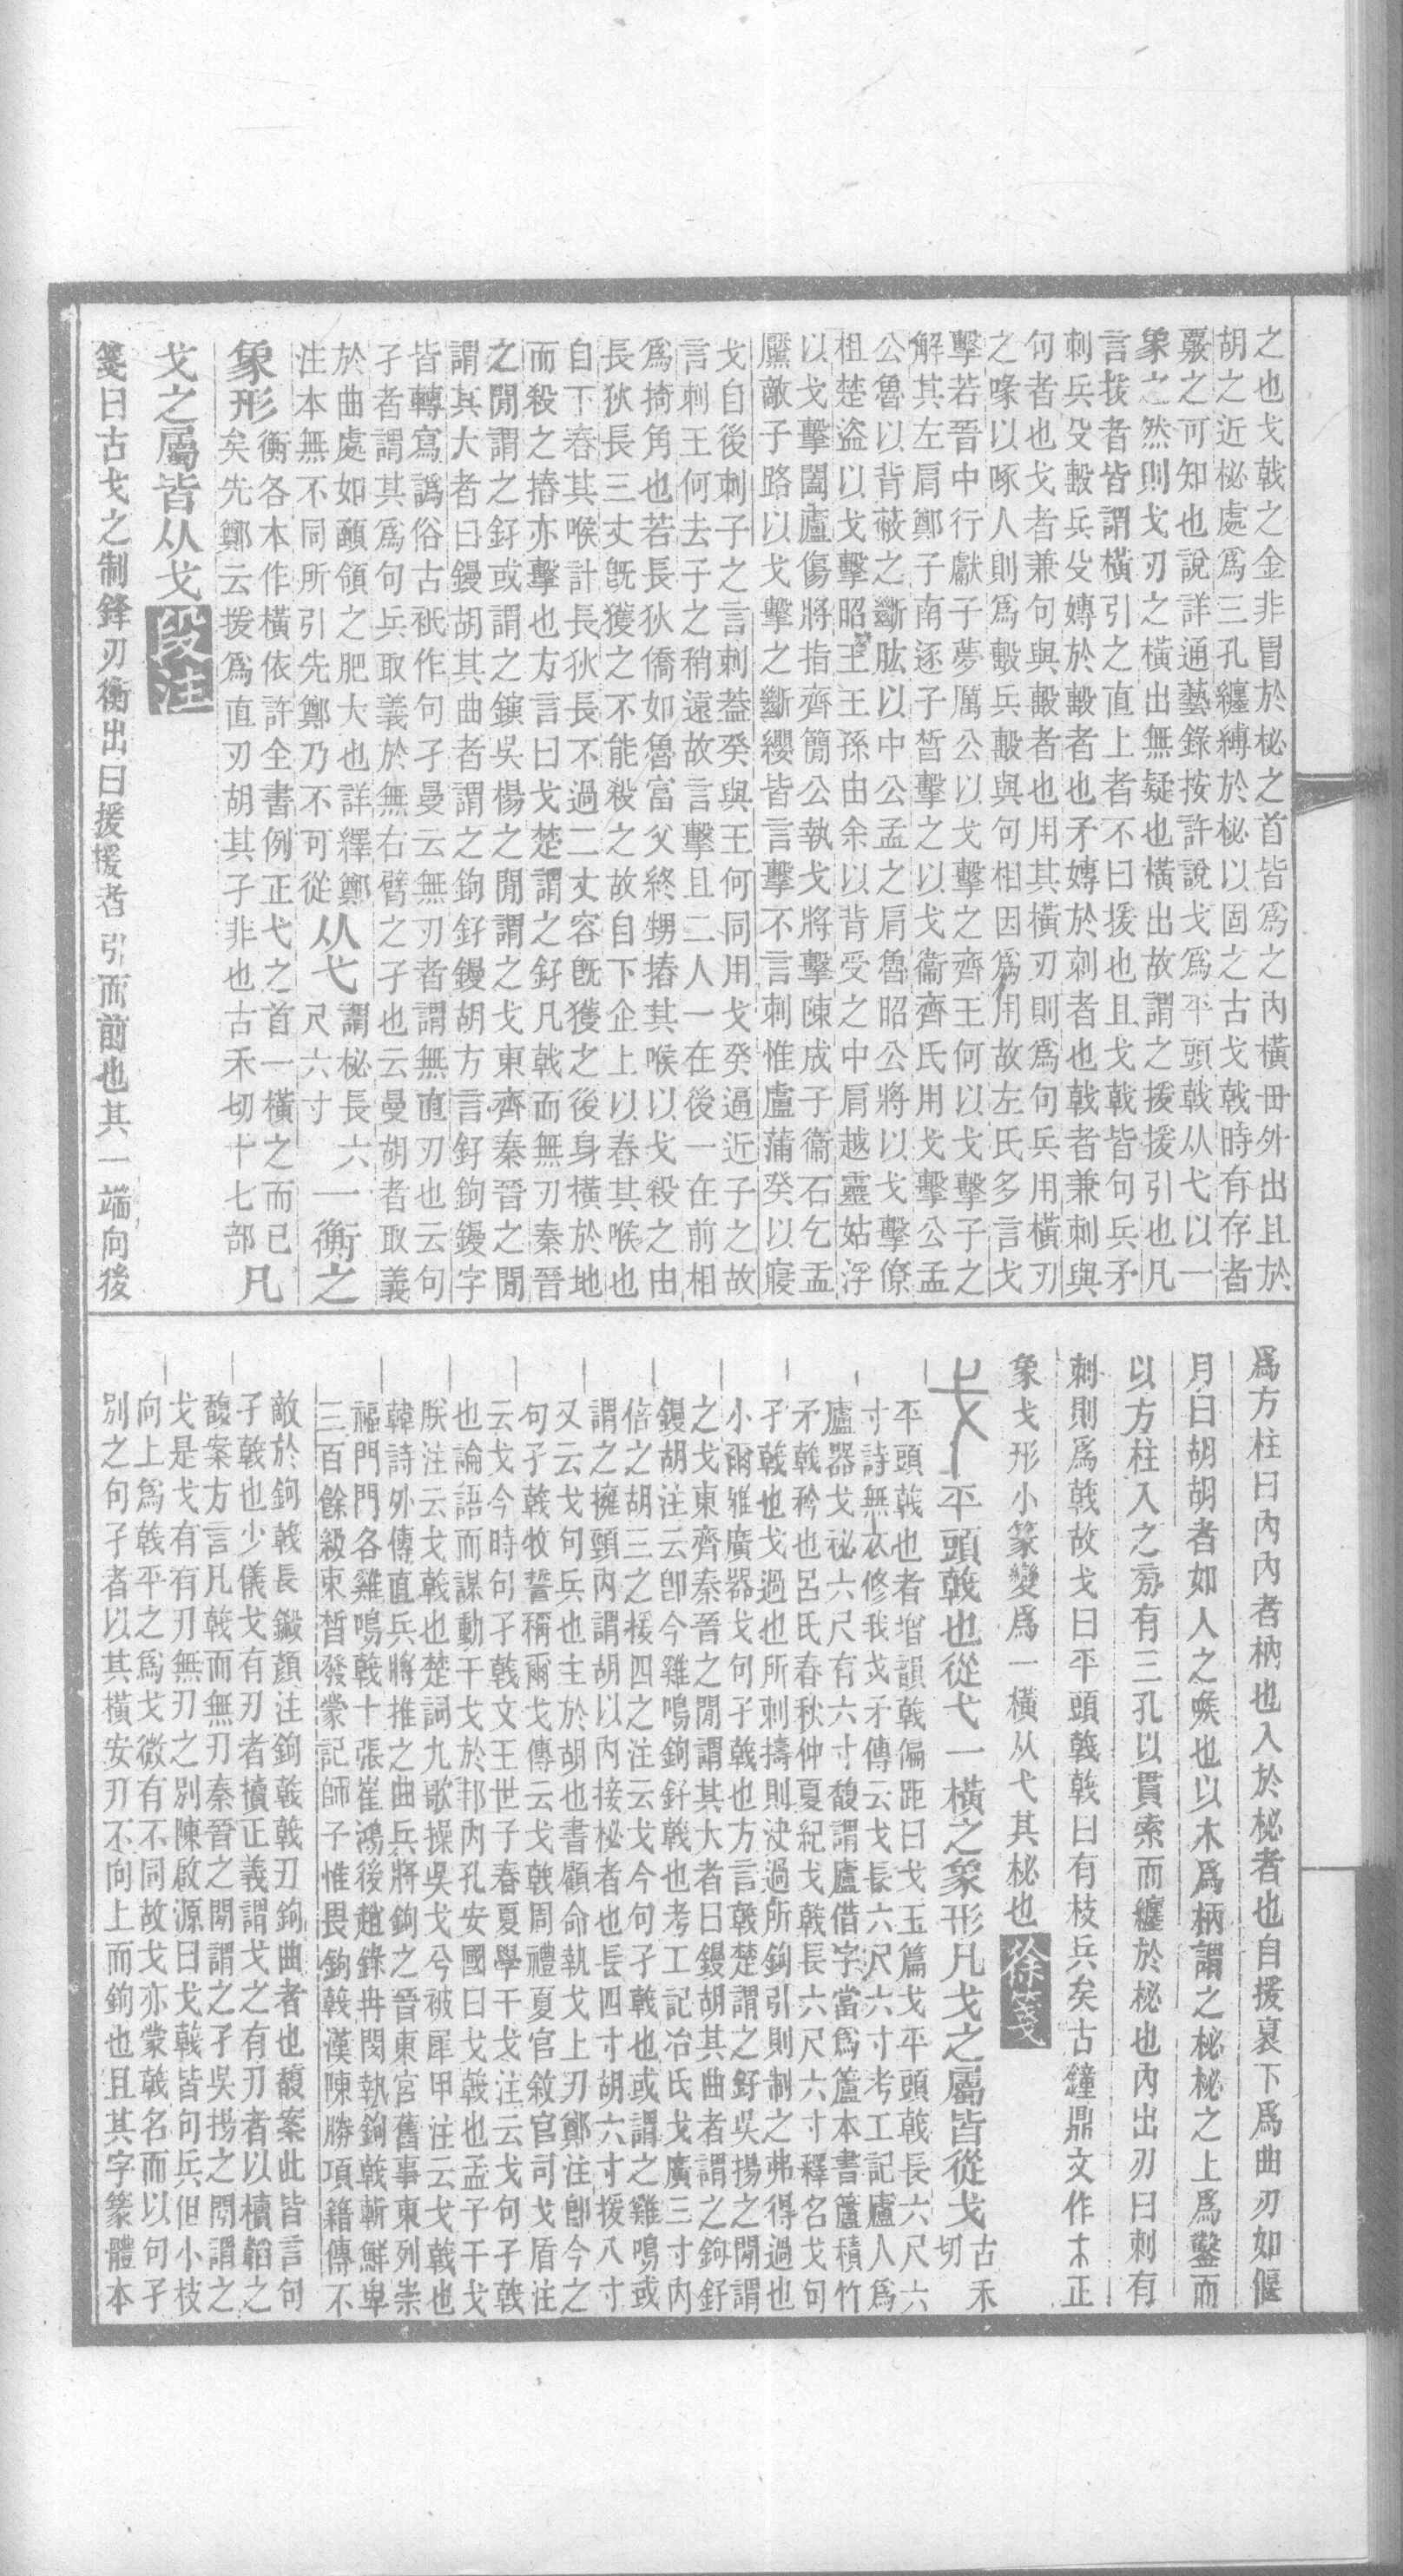 之也戈戟之金非冒於柲之首皆爲之內橫毌外出且於
胡之近柲處爲三孔纏縛於柲以固之古戈戟時有存者
覈之可知也說詳通藝錄按許說戈爲平頭戟从弋以一
象之然則戈刃之橫出無疑也橫出故謂之援援引也凡
言援者皆謂橫引之直上者不曰援也且戈戟皆句兵矛
刺兵殳毄兵殳嫥於毄者也矛嫥於刺者也戟者兼刺與
句者也戈者兼句與毄者也用其橫刃則爲句兵用橫刃
之喙以啄人則爲毄兵毄與句相因爲用故左氏多言戈
擊若晉中行獻子夢厲公以戈擊之齊王何以戈擊子之
解其左肩鄭子南逐子晳擊之以戈衞齊氏用戈擊公孟
公魯以背蔽之斷肱以中公孟之肩魯昭公將以戈擊僚
柤楚盜以戈擊昭王王孫由余以背受之中肩越靈姑浮
以戈擊闔廬傷將指齊簡公執戈將擊陳成子衞石乞盂
黶敵子路以戈擊之斷纓皆言擊不言刺惟盧蒲癸以寢
戈自後刺子之言刺葢癸與王何同用戈癸逼近子之故
言刺王何去子之稍遠故言擊且二人一在後一在前相
爲掎角也若長狄僑如魯富父終甥摏其喉以戈殺之由
長狄長三丈旣獲之不能殺之故自下企上以舂其喉也
自下舂其喉計長狄長不過二丈容旣獲之後身橫於地
而殺之摏亦擊也方言曰戈楚謂之釨凡戟而無刃秦晉
之閒謂之釨或謂之鏔吳楊之閒謂之戈東齊秦晉之閒
謂其大者曰鏝胡其曲者謂之鉤釨鏝胡方言釨鉤鏝字
皆轉寫譌俗古衹作句孑曼云無刃者謂無直刃也云句
孑者謂其爲句兵取義於無右臂之孑也云曼胡者取義
於曲處如顄領之肥大也詳繹鄭
注本無不同所引先鄭乃不可從从弋謂柲長六尺六寸一衡之
象形衡各本作橫依許全書例正弋之首一橫之而已矣先鄭云援爲直刃胡其孑非也古禾切十七部凡
戈之屬皆从戈段注
箋曰古戈之制鋒刃衡出曰援援者引而前也其一端向後
爲方柱曰內內者枘也入於柲者也自援裒下爲曲刃如偃
月曰胡胡者如人之喉也以木爲柄謂之柲柲之上爲鑿而
以方柱入之旁有三孔以貫索而纏於柲也內出刃曰刺有
刺則爲戟故戈曰平頭戟戟曰有枝兵矣古鐘鼎文作 正
象戈形小篆變爲一橫从弋其柲也徐箋
戈平頭戟也從弋一橫之象形凡戈之屬皆從戈古禾切
平頭戟也者增韻戟偏距曰戈玉篇戈平頭戟長六尺六
寸詩無衣修我戈矛傳云戈長六尺六寸考工記廬人爲
廬器戈柲六尺有六寸馥謂廬借字當爲籚本書籚積竹
矛戟矜也呂氏春秋仲夏紀戈戟長六尺六寸釋名戈句
孑戟也戈過也所刺擣則決過所鉤引則制之弗得過也
小爾雅廣器戈句孑戟也方言戟楚謂之釨吳揚之閒謂
之戈東齊秦晉之閒謂其大者曰鏝胡其曲者謂之鉤釨
鏝胡注云卽今雞鳴鉤釨戟也考工記冶氏戈廣三寸內
倍之胡三之援四之注云戈今句孑戟也或謂之雞鳴或
謂之擁頸內謂胡以內接柲者也長四寸胡六寸援八寸
又云戈句兵也主於胡也書顧命執戈上刃鄭注卽今之
句孑戟牧誓稱爾戈傳云戈戟周禮夏官敘官司戈盾注
云戈今時句孑戟文王世子春夏學干戈注云戈句孑戟
也論語而謀動干戈於邦內孔安國曰戈戟也孟子干戈
朕注云戈戟也楚詞九歌操吳戈兮被犀甲注云戈戟也
韓詩外傳直兵將推之曲兵將鉤之晉東宮舊事東列崇
福門門各雞鳴戟十張崔鴻後趙錄冉閔執鉤戟斬鮮卑
三百餘級束晳發蒙記師子惟畏鉤戟漢陳勝項籍傳不
敵於鉤戟長鎩顏注鉤戟戟刃鉤曲者也馥案此皆言句
孑戟也少儀戈有刃者櫝正義謂戈之有刃者以櫝韜之
馥案方言凡戟而無刃秦晉之閒謂之孑吳揚之閒謂之
戈是戈有有刃無刃之別陳啟源曰戈戟皆句兵但小枝
向上爲戟平之爲戈微有不同故戈亦蒙戟名而以句孑
別之句孑者以其橫安刃不向上而鉤也且其字篆體本